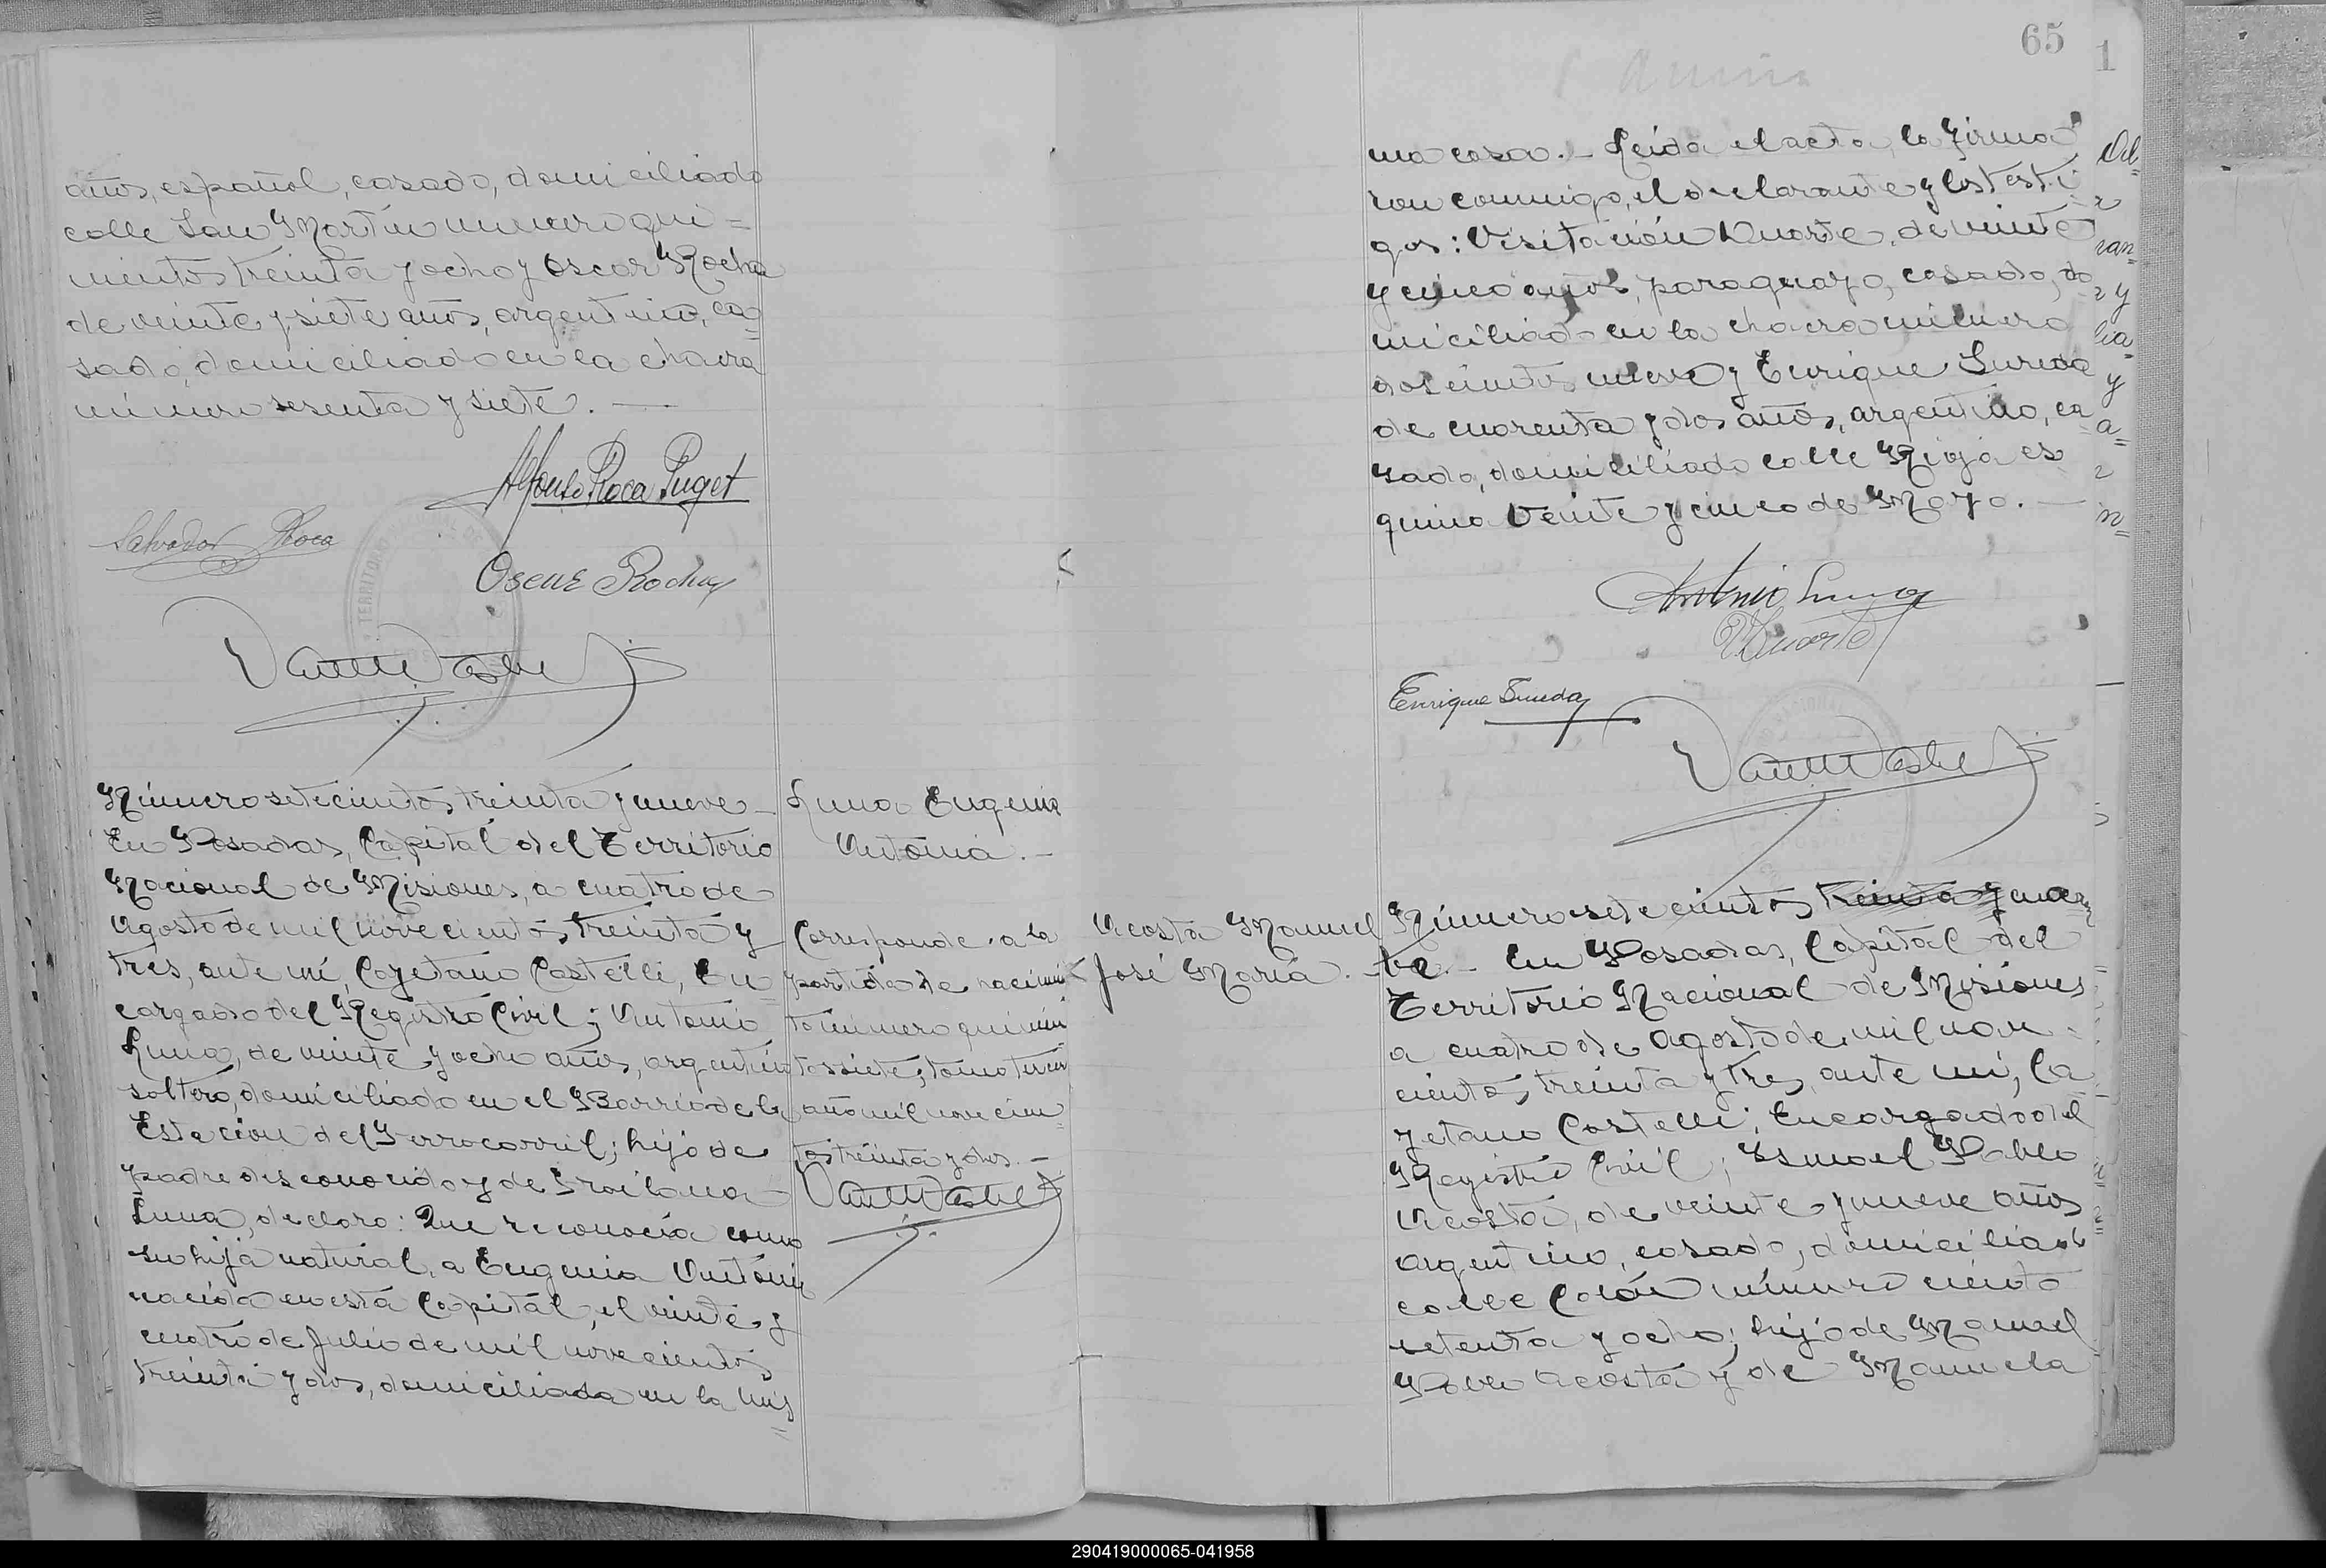 años, español, casado, domiciliado
calle San Martín número qui=
nientos treinta y ocho y Oscar Rocha
de veinte y siete años, argentino, ca=
sado, domiciliado en la chacra
número sesenta y siete. —
Alfonso Roca Puget
Salvador Roca
Oscar Rocha
Número setecientos treinta y nueve —
En Posadas, Capital del Territorio
Nacional de Misiones, a cuatro de
Agosto de mil novecientos treinta y
tres, ante mí, Cayetano Castelli, En=
cargado del Registro Civil; Antonio
Luna, de veinte y ocho años, argentino
soltero, domiciliado en el Barrio de la
Estacion del Ferrocarril; hijo de
padre desconocido y de
Luna, declaro: Que reconocía como
su hija natural, a Eugenia Antonia
nacida en esta Capital, el veinte y
cuatro de Julio de mil novecientos
treinta y dos, domiciliada en la mis=
Luna Eugenia
Antonia. —
Corresponde a la
partida de nacimien
to número quinien
tos siete, tomo tercero
año mil novecien=
tos treinta y dos. —
65
ma casa. — Leida el acta, la firma
ron conmigo, el declarante y los testi
gos: Visitación Duarte, de veinte
y cinco años, paraguayo, casado, do
miciliado en la chacra número
doscientos nueve y Enrique Sureda
de cuarenta y dos años, argentino, ca=
sado, domiciliado calle Rioja es
quina Veinte y cinco de Mayo. —
Antonio Luna
V Duarte
Enrique Sureda
Acosta Manuel
José María. —
Número setecientos treinta y nueve
bis. — En Posadas, Capital del
Territorio Nacional de Misiones
a cuatro de Agosto de mil nove=
cientos treinta y tres, ante mí, Ca
yetano Castelli; Encargado del
Registro Civil; Ismael Pablo
Acosta, de veinte y nueve años
argentino, casado, domiciliado
calle Colón número ciento
setenta y ocho; hijo de Manuel
Pablo Acosta y de Manuela
290419000065-041958